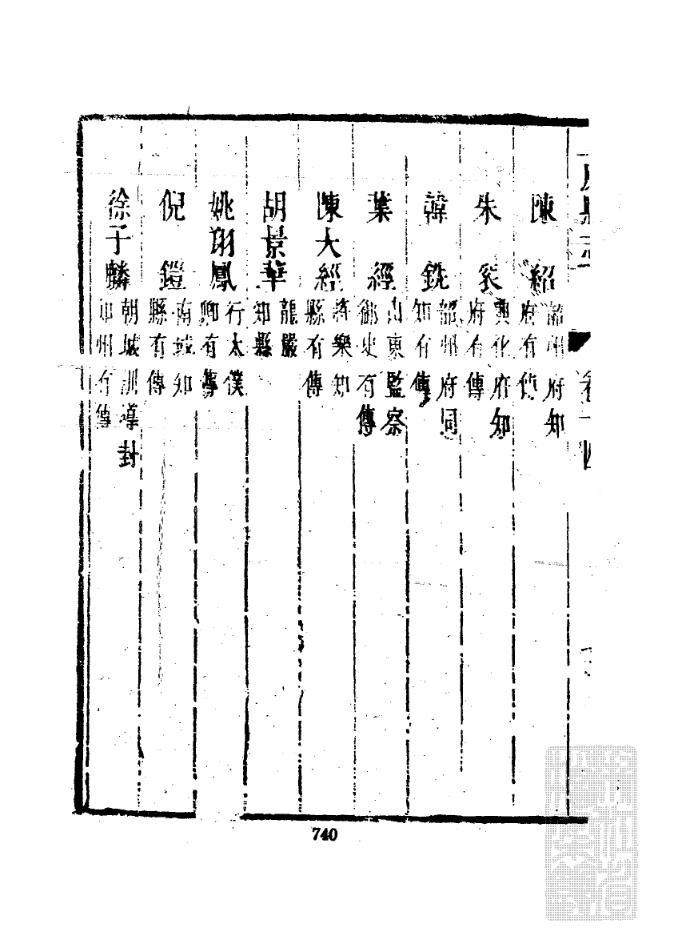 陳紹 韶州府知府有傳
朱袞 興化府知府有傳
韓銑 韶州府同知有傳
葉經 山東監察御史有傳
陳大經 將樂知縣有傳
胡景華 龍巖知縣
姚翔鳳 行太僕卿有傳
倪鎧 南城知縣有傳
徐子麟 朝城訓導封州有傳
740